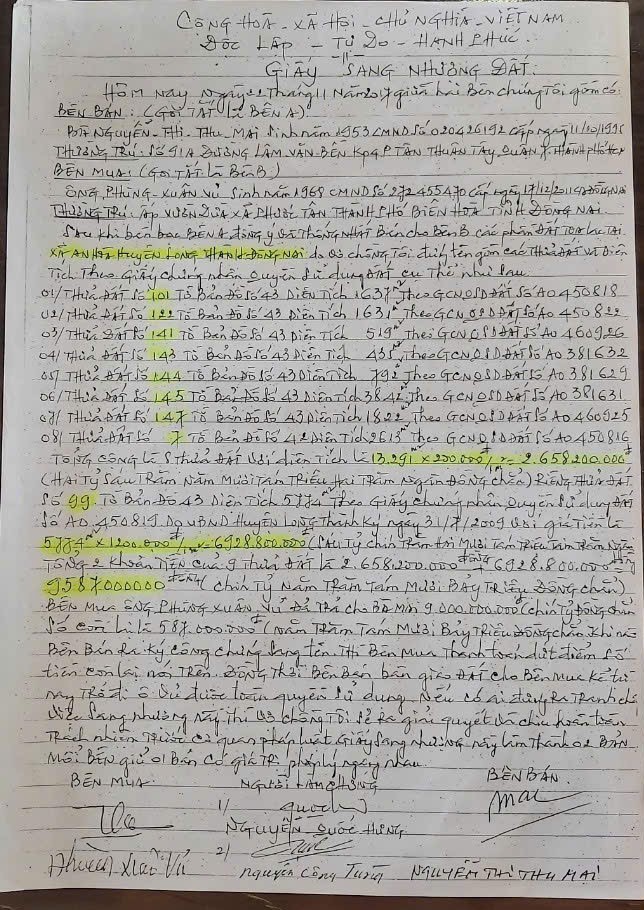 CỘNG HOÀ - XÃ HỘI - CHỦ NGHĨA - VIỆT NAM
ĐỐC LẬP - TỰ DO - HẠNH PHÚC.
GIẤY SANG NHƯỢNG ĐẤT.
Hôm nay ngày 2 Tháng 11 Năm 2017 giữa hai Bên chúng Tôi gồm có
BÊN BÁN: (GỌI TẮT LÀ BÊN A)
BÀ NGUYỄN - Thị - THU - MAI Sinh năm 1953 CMND Số 020426192 cấp ngày 11/20/1995
THƯỜNG TRÚ: Số 91A ĐƯỜNG LÂM VĂN BỀN KP4 P TÂN THUẬN TÂY QUẬN 7 THÀNH PHỐ HCM
BÊN MUA: (GỌI TẮT LÀ BÊN B)
ÔNG PHÙNG - XUÂN VŨ Sinh năm 1968 CMND Số 272455470 cấp ngày 17/12/2011 CA ĐỒNG NAI
THƯỜNG TRÚ: ẤP VƯỜN DỪA XÃ PHƯỚC TÂN THÀNH PHỐ BIÊN HOÀ TỈNH ĐỒNG NAI
Sau khi bên bán BÊN A đồng ý và THỐNG NHẤT Bán cho Bên B các phần ĐẤT TOẠ LẠC TẠI
XÃ AN HOÀ HUYỆN LONG THÀNH ĐỒNG NAI do vợ chồng Tôi đứng tên gồm các THỬA ĐẤT Diện
Tích Theo Giấy chứng nhận Quyền sử dụng ĐẤT cụ Thể như sau
01/ THỬA ĐẤT Số 101 Tờ BẢN ĐỒ Số 43 DIỆN TÍCH 1637 m² Theo GCNQSD ĐẤT Số AO 450818
02/ THỬA ĐẤT Số 122 Tờ BẢN ĐỒ Số 43 DIỆN TÍCH 1631 m² Theo GCNQSD ĐẤT Số AO 450822
03/ THỬA ĐẤT Số 141 Tờ BẢN ĐỒ Số 43 DIỆN TÍCH 519 m² Theo GCNQSD ĐẤT Số AO 460926
04/ THỬA ĐẤT Số 143 Tờ BẢN ĐỒ Số 43 DIỆN TÍCH 435 m² Theo GCNQSD ĐẤT Số AO 381632
05/ THỬA ĐẤT Số 144 Tờ BẢN ĐỒ Số 43 DIỆN TÍCH 792 m² Theo GCNQSD ĐẤT Số AO 381629
06/ THỬA ĐẤT Số 145 Tờ BẢN ĐỒ Số 43 DIỆN TÍCH 3842 m² Theo GCNQSD ĐẤT Số AO 381631
07/ THỬA ĐẤT Số 147 Tờ BẢN ĐỒ Số 43 DIỆN TÍCH 1822 m² Theo GCNQSD ĐẤT Số AO 460925
08/ THỬA ĐẤT Số 7 Tờ BẢN ĐỒ Số 42 DIỆN TÍCH 2613 m² Theo GCNQSD ĐẤT Số AO 450816
TỔNG CỘNG LÀ 8 THỬA ĐẤT Với diện Tích là 13.291 × 200.000đ/m² = 2.658.200.000đ
(HAI TỶ SÁU TRĂM NĂM MƯƠI TÁM TRIỆU HAI TRĂM NGÀN ĐỒNG chẵn) RIÊNG THỬA ĐẤT
Số 99 Tờ BẢN ĐỒ 43 DIỆN TÍCH 5774 m² Theo Giấy Chứng nhận Quyền sử dụng ĐẤT
Số AO 450819 Do UBND HUYỆN LONG THÀNH Ký ngày 31/7/2009 Với giá Tiền là
5774 m² × 1200.000đ/m² = 6928.800.000đ (Sáu Tỷ chín TRĂM Hai Mươi Tám Triệu Tám TRĂM Ngàn
TỔNG 2 KHOẢN TIỀN CỦA 9 Thửa ĐẤT LÀ 2.658.200.000 đồng 6928.800.000 =
9587.000000 đồng (chín Tỷ Năm TRĂM Tám Mươi BẢY TRIỆU ĐỒNG chẵn)
BÊN MUA ÔNG PHÙNG XUÂN VŨ ĐÃ TRẢ CHO BÀ MAI 9.000.000.000đ (chín Tỷ ĐỒNG chẵn
Số còn lại là 587.000.000đ (Năm TRĂM Tám Mươi Bảy TRIỆU ĐỒNG chẵn Khi nào
Bên Bán Ra Ký công chứng Sang Tên. Thì Bên Mua Thanh toán dứt điểm Số
tiền còn lại nói Trên. ĐỒNG Thời Bên Bán bàn giao ĐẤT cho Bên Mua kể từ
nay TRỞ đi Ô Vũ được toàn quyền sử dụng Nếu có ai đứng ra Tranh chấp
Việc Sang nhượng này thì Vợ chồng Tôi Sẽ Ra giải quyết và chịu hoàn toàn
Trách nhiệm TRƯỚC cơ quan pháp luật Giấy Sang nhượng này làm Thành 02 BẢN
MỖI BÊN giữ 01 Bản Có giá TRỊ pháp lý ngang nhau
BÊN MUA NGƯỜI LÀM CHỨNG BÊN BÁN
1/ mai
NGUYỄN QUỐC HƯNG
2/
Phùng Xuân Vũ nguyễn Công Tùng NGUYỄN THỊ THU MAI